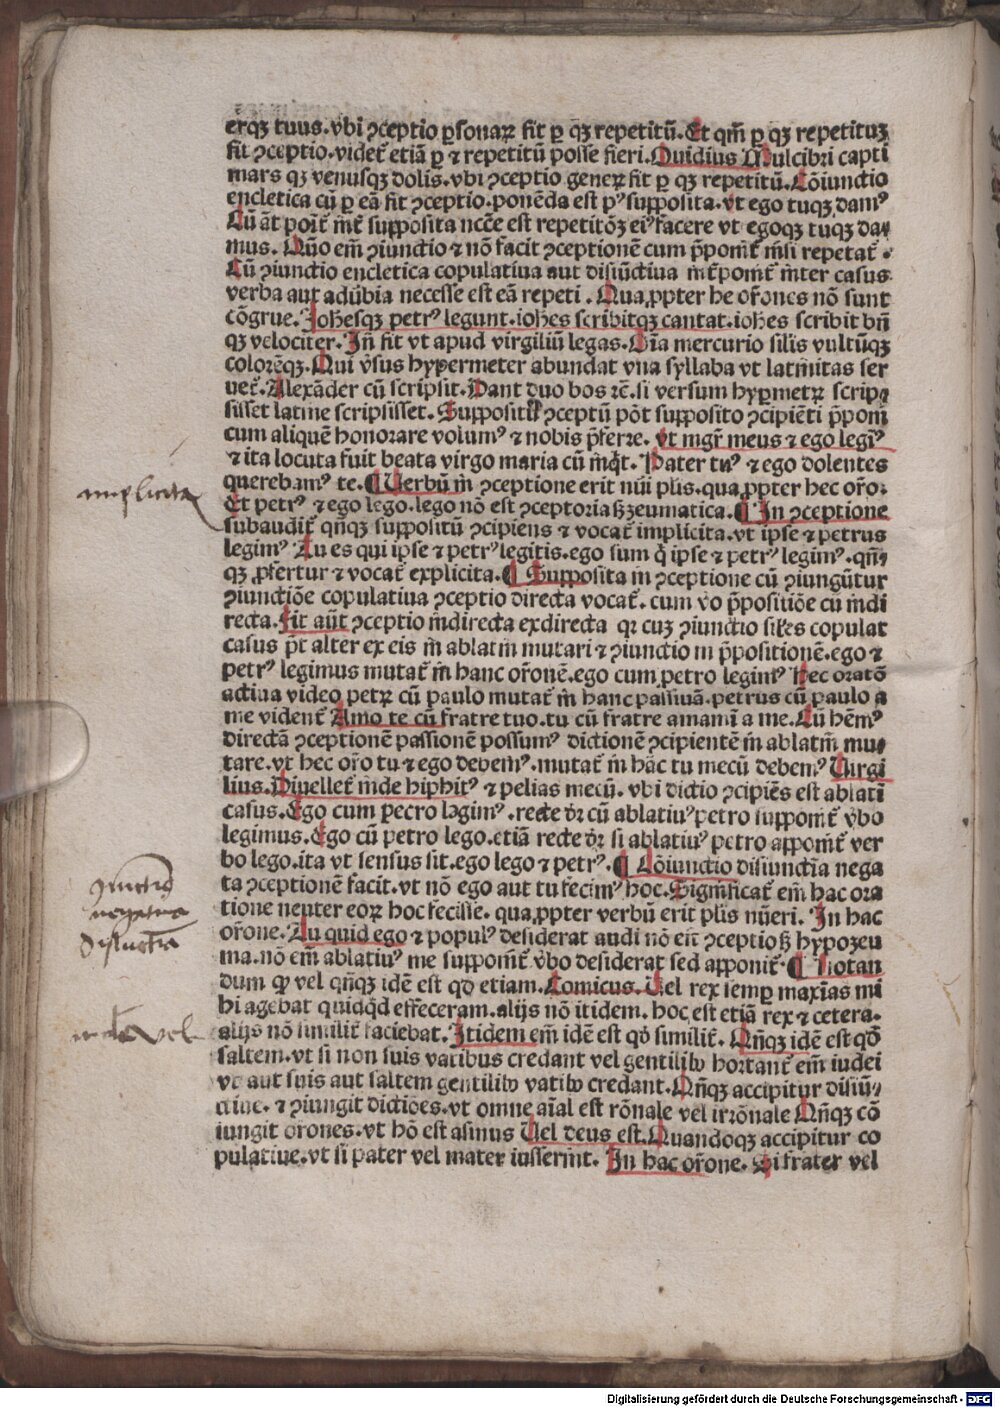 erqꝫ tuus. vbi ꝯceptio ꝑsonaꝝ fit ꝑ qꝫ repetitū. Et qm̄ ꝑ qꝫ repetituꝫ
fit ꝯceptio. videt᷑ etiā ꝑ ⁊ repetitū posse fieri. Ouidius Mulcibri capti
mars qꝫ venusqꝫ dolis. vbi ꝯceptio geneꝝ fit ꝑ qꝫ repetitū. Cōiunctio
encletica cū ꝑ eā fit ꝯceptio. ponēda est pꝰ supposita. vt ego tuqꝫ damꝰ
Cū āt poit᷑ int᷑ supposita ncc̄e est repetitōꝫ eiꝰ facere vt egoqꝫ tuqꝫ da⸗
mus. Qn̄o em̄ ꝯiunctio ⁊ nō facit ꝯceptionē cum p̄pomt᷑ nisi repetat᷑.
Cū ꝯiunctio encletica copulatiua aut disiūctiua int᷑pomt᷑ inter casus
verba aut aduībia necesse est eā repeti. Quaꝓpter he or̄ones nō sunt
cōgrue. Joh̄esqꝫ petrꝰ legunt. ioh̄es scribitqꝫ cantat. ioh̄es scribit bn̄
qꝫ velociter. Jn̄ fit vt apud virgiliū legas. Oīa mercurio silis vultūqꝫ
colorēqꝫ. Qui v̄sus hypermeter abundat vna syllaba vt latinitas ser
uet᷑. Alexāder cū scripsit. Dant duo bos rē. si versum hyꝑmetꝝ scrip⸗
sisset latine scripsisset. Suppositū ꝯceptū pōt supposito ꝯcipiēti p̄poni
cum aliquē honorare volumꝰ ⁊ nobis p̄ferre. vt mgr̄ meus ⁊ ego legīꝰ
⁊ ita locuta fuit beata virgo maria cū inq̄t. Pater tuꝰ ⁊ ego dolentes
querebamꝰ te. ¶ Uerbū in ꝯceptione erit nūi plis. quaꝓpter hec or̄o.
Et petrꝰ ⁊ ego lego. lego nō est ꝯceptoria sꝫ zeumatica. ¶ In ꝯceptione
subaudit᷑ qn̄qꝫ suppositū ꝯcipiens ⁊ vocat᷑ implicita. vt ipse ⁊ petrus
legimꝰ Tu es qui ipse ⁊ petrꝰ legitis. ego sum q̄ ipse ⁊ petrꝰ legimꝰ. qn̄⸗
qꝫ ꝓfertur ⁊ vocat᷑ explicita. ¶ Supposita in ꝯceptione cū ꝯiungūtur
ꝯiunctiōe copulatiua ꝯceptio directa vocat᷑. cum v̄o p̄positiōe cū indi
recta. Fit aūt ꝯceptio indirecta ex directa qꝛ cuꝫ ꝯiunctio siles copulat
casus p̄t alter ex eis in ablatm̄ mutari ⁊ ꝯiunctio in p̄positionē. ego ⁊
petrꝰ legimus mutat᷑ in hanc or̄onē. ego cum petro legimꝰ Hec oratō
actiua video petꝝ cū paulo mutat᷑ in hanc passiuā. petrus cū paulo a
me vident᷑ Amo te cū fratre tuo. tu cū fratre amamī a me. Cū hēmꝰ
directā ꝯceptionē passionē possumꝰ dictionē ꝯcipientē in ablatm̄ mu⸗
tare. vt hec or̄o tu ⁊ ego debemꝰ. mutat᷑ in hāc tu mecū debemꝰ Uirgi
lius. Diuellet᷑ inde hiphitꝰ ⁊ pelias mecū. vbi dictio ꝯcipiēs est ablati
casus. Ego cum petro legimꝰ. recte dꝛ cū ablatiuꝰ petro suppomt᷑ v̄bo
legimus. Ego cū petro lego. etiā recte dꝛ si ablatiuꝰ petro appomt᷑ ver
bo lego. ita vt sensus sit. ego lego ⁊ petrꝰ. ¶ Cōiunctio disiunctīa nega
ta ꝯceptionē facit. vt nō ego aut tu fecimꝰ hoc. Significat᷑ em̄ hac ora
tione neuter eoꝝ hoc fecisse. quaꝓpter verbū erit plis nūeri. In hac
or̄one. Tu quid ego ⁊ populꝰ desiderat audi nō est ꝯceptio sꝫ hypozeu
ma. nō em̄ ablatiuꝰ me suppomt᷑ v̄bo desiderat sed apponit᷑. ¶ Notan
dum ꝙ vel qn̄qꝫ idē est qd̄ etiam. Comicus. Uel rex semꝑ maxīas mi
hi agebat quidq̄d effeceram. alijs nō itidem. hoc est etiā rex ⁊ cetera.
alijs nō similit᷑ faciebat. Itidem em̄ idē est qd̄ similit᷑. Qn̄qꝫ idē est qd̄
saltem. vt si non suis vatibus credant vel gentiliꝫ hortant᷑ em̄ iudei
vt aut suis aut saltem gentiliꝫ vatiꝫ credant. Qn̄qꝫ accipitur disiū⸗
ctiue. ⁊ ꝯiungit dictiōes. vt omne aīal est rōnale vel irrōnale Qn̄qꝫ cō
iungit or̄ones. vt hō est asinus Uel deus est. Quandoqꝫ accipitur co
pulatiue. vt si pater vel mater iusserint. In hac or̄one. Si frater vel
implicita
ꝯiunctio
negatiua
disiunctīa
vel
Digitalisierung gefördert durch die Deutsche Forschungsgemeinschaft - DFG